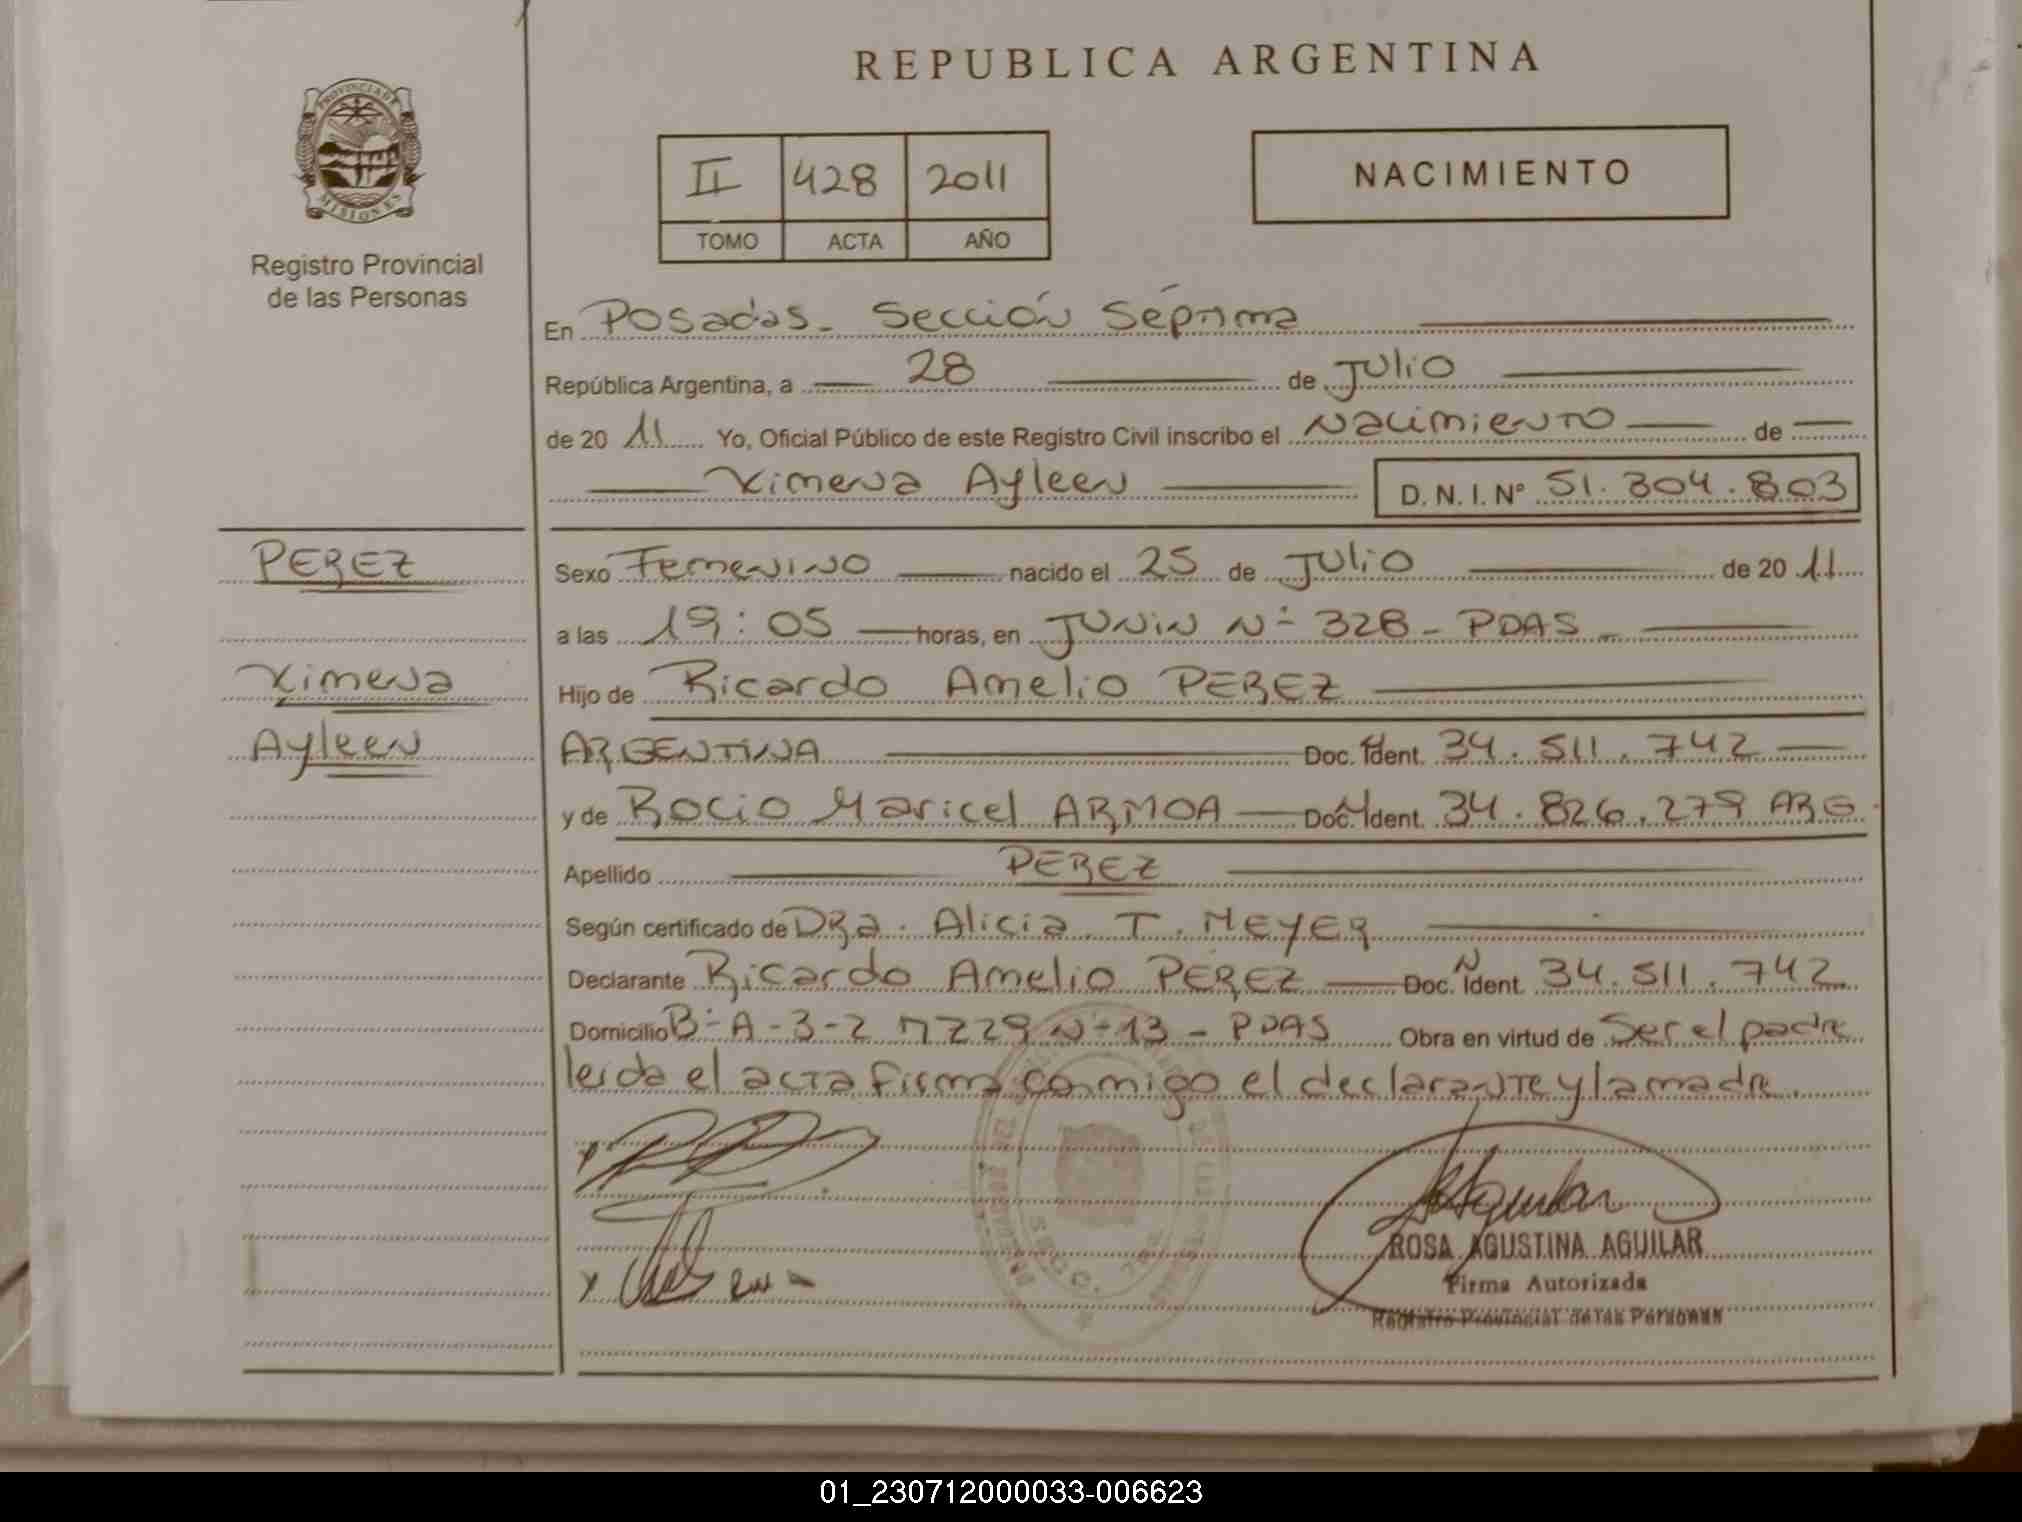 REPUBLICA ARGENTINA
PROVINCIA DE
MISIONES
Registro Provincial
de las Personas
II 428 2011
TOMO ACTA AÑO
NACIMIENTO
En Posadas - Sección Séptima
República Argentina, a 28 de Julio
de 20 11 Yo, Oficial Público de este Registro Civil inscribo el Nacimiento de
Ximena Ayleen D.N.I. Nº 51.304.803
PEREZ
Ximena
Ayleen
Sexo Femenino nacido el 25 de Julio de 20 11
a las 19:05 horas, en JUNIN Nº 328 - PDAS -
Hijo de Ricardo Amelio PEREZ
ARGENTINA Doc. Ident. 34.511.742
y de Rocio Maricel ARMOA Doc. Ident. 34.826.279 ARG.
Apellido PEREZ
Según certificado de DRa. Alicia T. MEYER
Declarante Ricardo Amelio PEREZ Doc. Ident. 34.511.742
Domicilio Bº A-3-2 MZ 29 Nº 13 - PDAS Obra en virtud de Ser el padre
leida el acta firma conmigo el declarante y la madre.
ROSA AGUSTINA AGUILAR
Firma Autorizada
Registro Provincial de las Personas
01_230712000033-006623